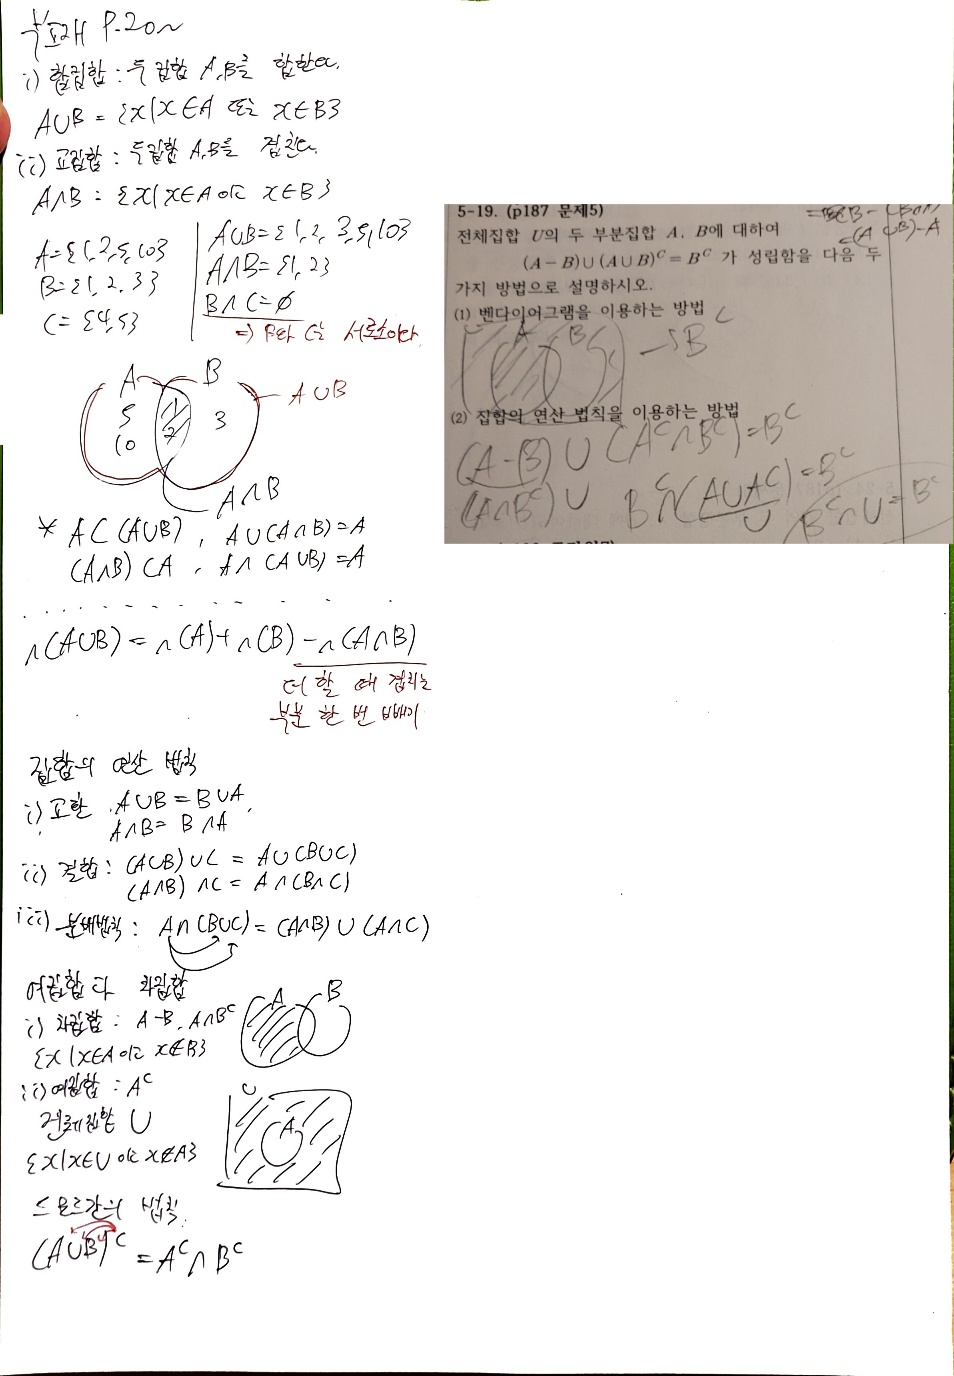 부교재 P.20~
i) 합집합 : 두 집합 A,B를 합한다.
A∪B = {x|x∈A 또는 x∈B}
ii) 교집합 : 두집합 A,B를 겹친다.
A∩B = {x|x∈A 이고 x∈B}
A={1,2,5,10}
B={1,2,3}
C={4,5}
A∪B={1,2,3,5,10}
A∩B={1,2}
B∩C=∅
⇒ B와 C는 서로소이다.
A B
A∪B
5
10
1
2
3
A∩B
* A⊂(A∪B), A∪(A∩B)=A
(A∩B)⊂A, A∩(A∪B)=A
n(A∪B)=n(A)+n(B)-n(A∩B)
더 할 때 겹치는
부분 한 번 빼기
집합의 연산 법칙
i) 교환 A∪B=B∪A,
A∩B=B∩A
ii) 결합: (A∪B)∪C = A∪(B∪C)
(A∩B)∩C = A∩(B∩C)
iii) 분배법칙: A∩(B∪C)=(A∩B)∪(A∩C)
여집합과 차집합
i) 차집합 : A-B, A∩Bᶜ
{x|x∈A 이고 x∉B}
A B
ii) 여집합 : Aᶜ
전체집합 U
{x|x∈U 이고 x∉A}
U
A
드모르간의 법칙.
(A∪B)ᶜ = Aᶜ∩Bᶜ
5-19. (p187 문제5)
=(A∪B)-A
전체집합 U의 두 부분집합 A, B에 대하여
(A-B)∪(A∪B)ᶜ=Bᶜ 가 성립함을 다음 두
가지 방법으로 설명하시오.
(1) 벤다이어그램을 이용하는 방법
A B
Bᶜ
(2) 집합의 연산 법칙을 이용하는 방법
(A-B)∪(Aᶜ∩Bᶜ)=Bᶜ
(A∩Bᶜ)∪
Bᶜ∩(A∪Aᶜ)=Bᶜ
U
Bᶜ∩U=Bᶜ